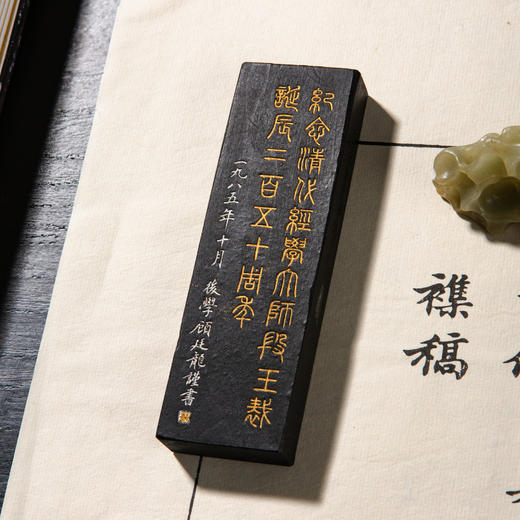 紀念清代經學大師段玉裁
誕辰二百五十周年
一九八五年十月　後學顧廷龍謹書
襍稿